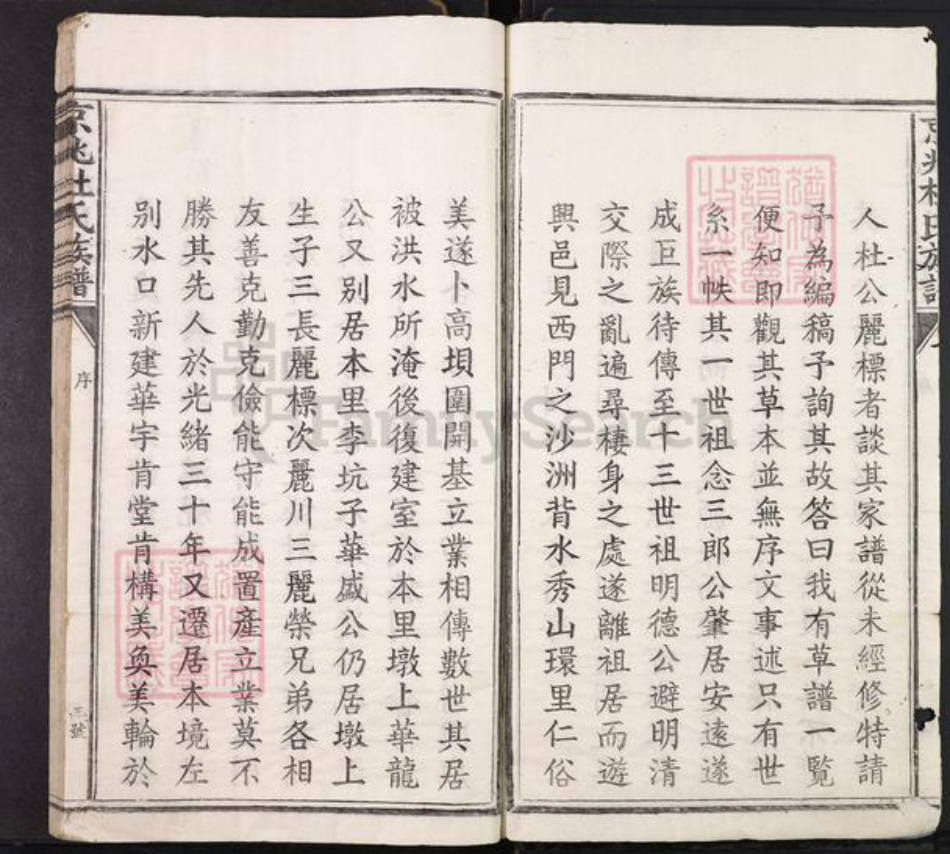 人杜公麗標者談其家譜從未經修特請
予為編稿予詢其故答曰我有草譜一覧
便知即觀其草本並無序文事述只有世
系一帙其一世祖念三郎公肇居安遠遂
成巨族待傳至十三世祖明德公避明清
交際之亂遍尋棲身之處遂離祖居而遊
興邑見西門之沙洲背水秀山環里仁俗
美遂卜高垻圍開基立業相傳數世其居
被洪水所淹後復建室於本里墩上華龍
公又別居本里李坑子華盛公仍居墩上
生子三長麗標次麗川三麗榮兄弟各相
友善克勤克儉能守能成置產立業莫不
勝其先人於光緒三十年又遷居本境左
別水口新建華宇肯堂肯構美奐美輪於
京兆杜氏族譜
序
三號
京兆杜氏族譜
FamilySearch